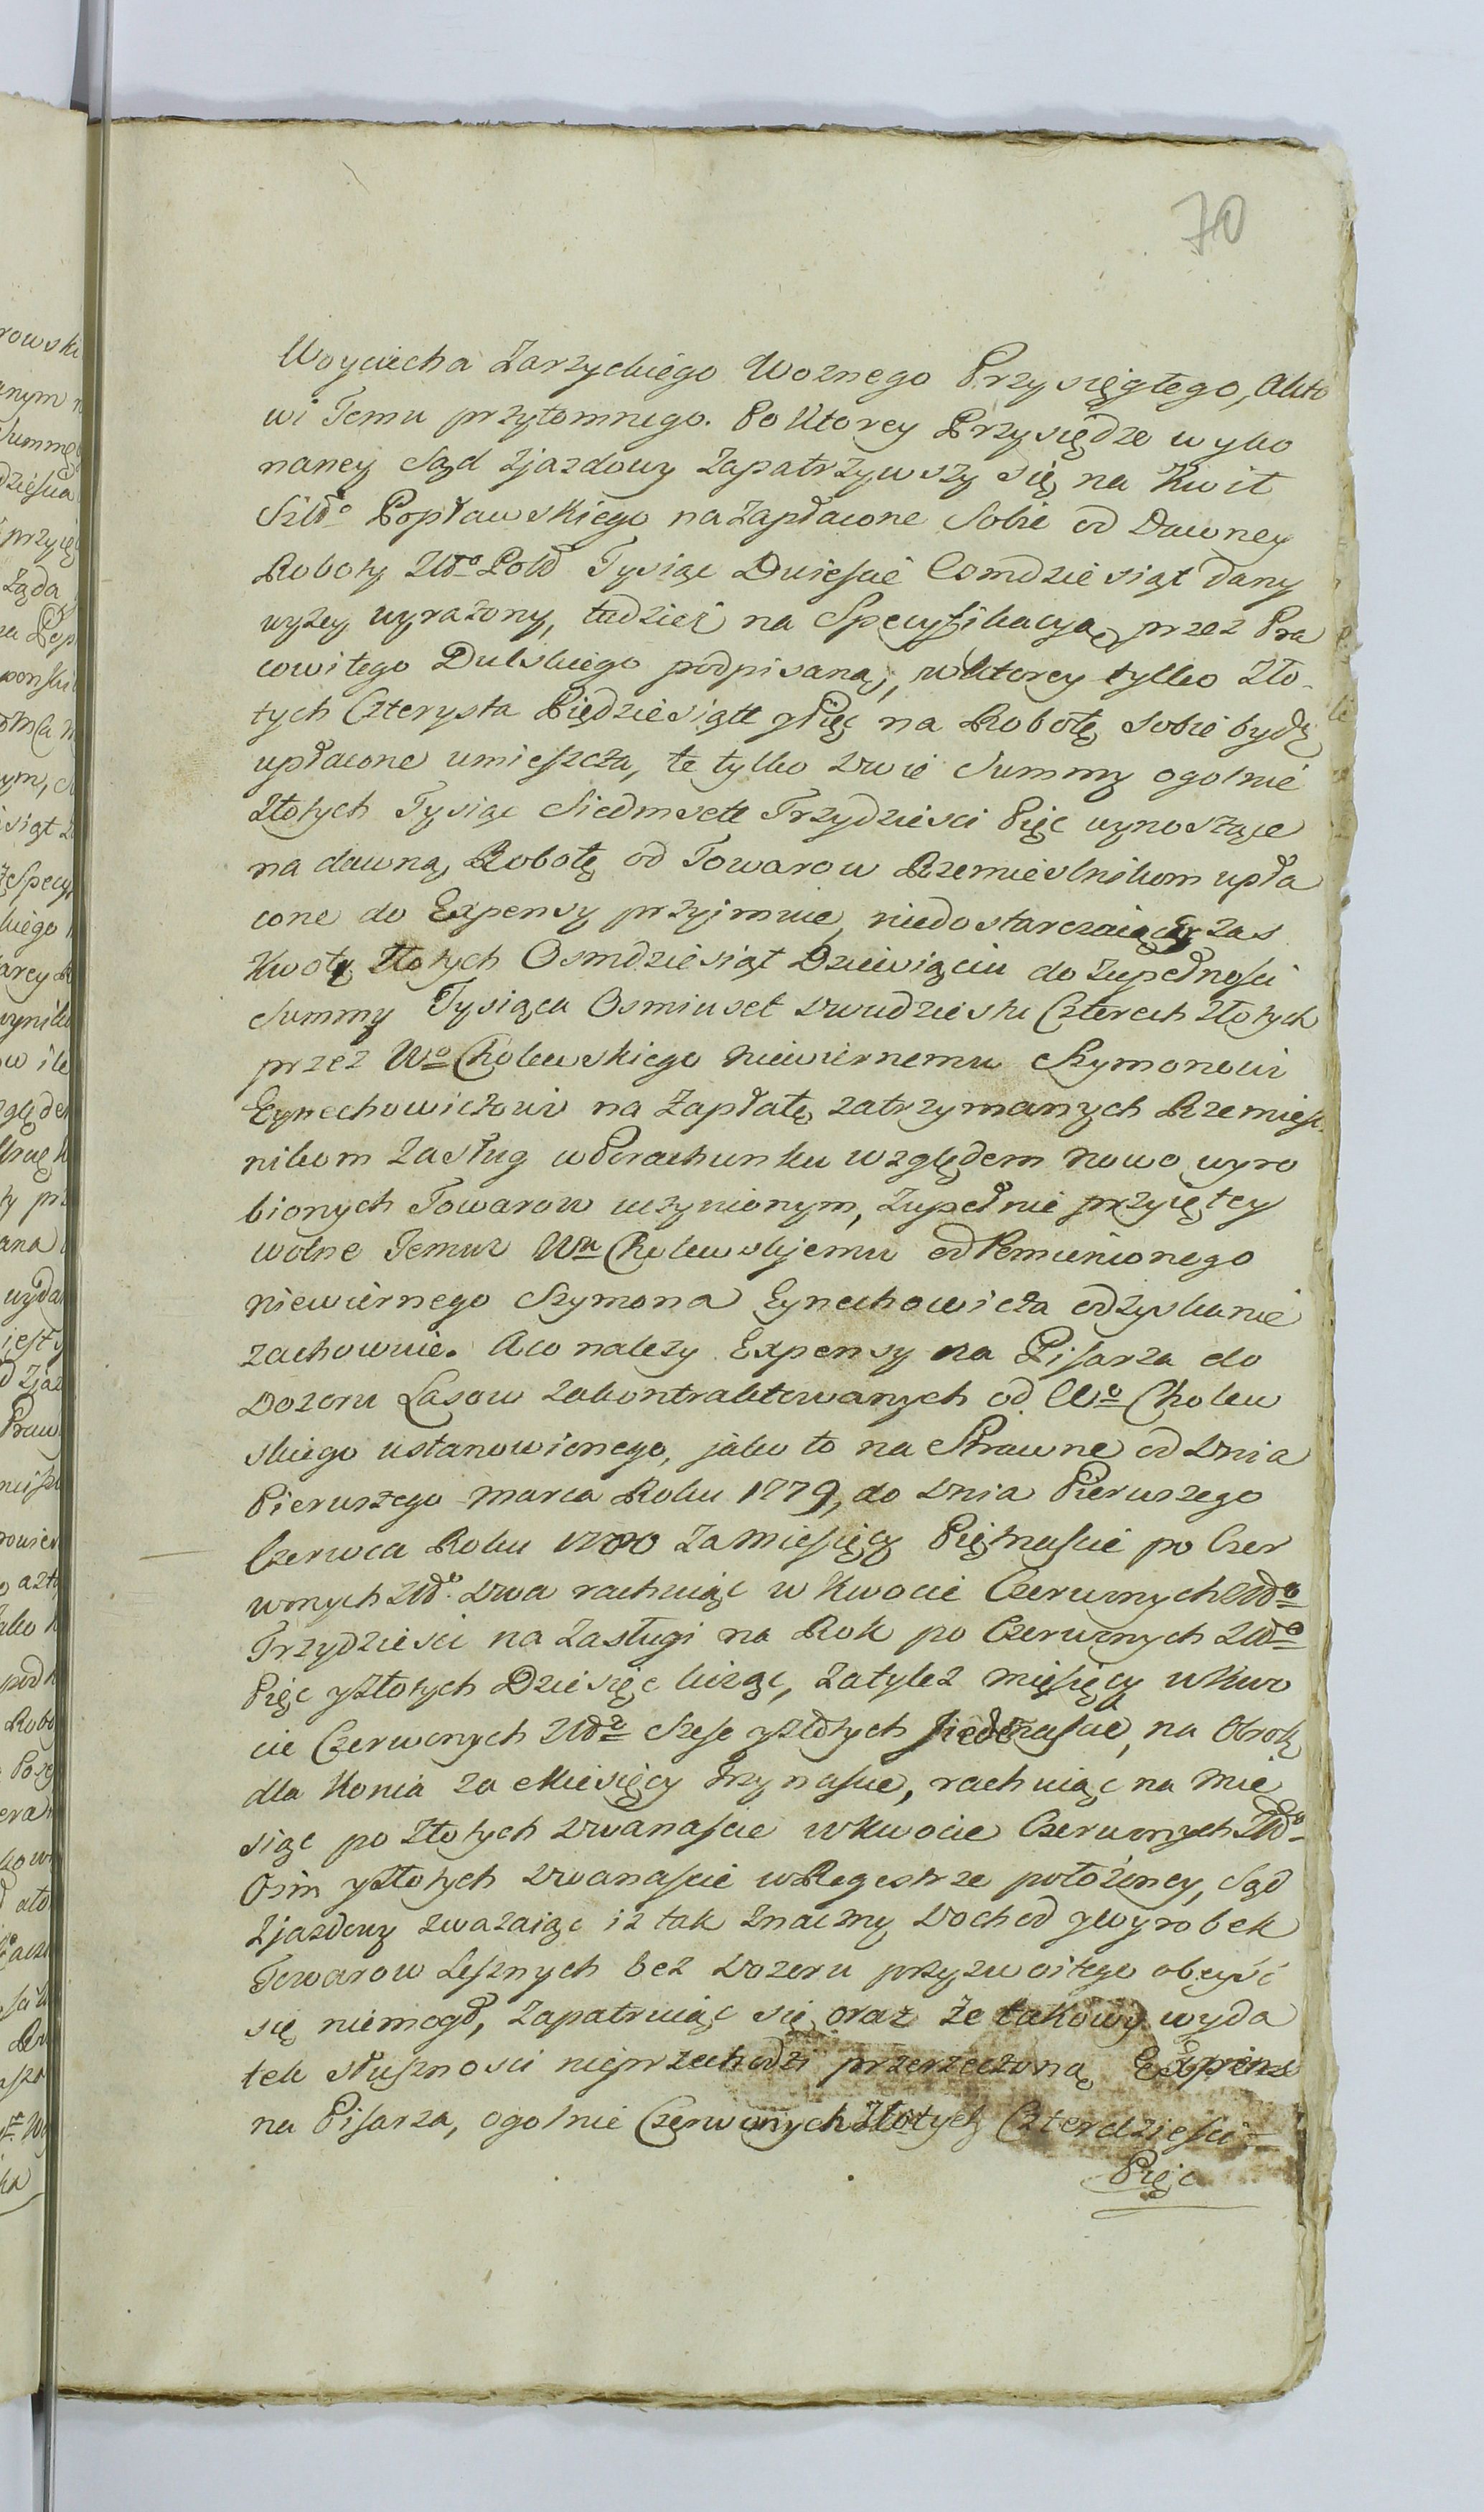 70
Woyciecha Zarzyckiego Woznego Przysięgłego, Akto
wi Temu przytomnego. Po Ktorey Przysiędze wyko
naney Sąd Zjazdowy Zapatrzywszy się na Kwit
Szlo Popławskiego na Zapłacone Sobie od Dawney
Roboty Złło Pold Tysiąc Dwieście Osmdziesiąt dany
wyzey wyrażony, tudzież na Specyfikacyą, przez Pra
cowitego Dulskiego podpisaną, w Ktorey tylko Zło-
tych Czterysta Pięćdziesiątt y Pięć na Robotę Sobie bydź
upłacone umieszcza, te tylko dwie Summy ogolnie
Złotych Tysiąc Siedmsett Trzydzieści Pięć wynoszące
na dawną Robotę od Towarow Rzemieślnikom upła
cone do Expensy przyjmuie, niedostarczaiącey zas
Kwoty Złotych Osmdziesiąt Dziewiąciu do Zupełności
Summy Tysiąca Osmiuset dwudziestu Czterech Złotych
przez Wo Cholewskiego Niewiernemu Szymonowi
Eynechowiczowi na Zapłatę zatrzymanych Rzemieśl
nikom Zasług w Porachunku względem nowo wyro
bionych Towarow uczynionym, zupełnie przyiętey
wolne Temuz Wu Cholewskjemu od Pomienionego
niewiernego Szymona Eynechowicza odzyskanie
zachowuie. Aco nalezy Expensy na Pisarza do
Dozoru Lasow zakontraktowanych od Wo Cholew
skiego ustanowionego, jako to na Strawne od Dnia
Pierwszego Marca Roku 1779, do Dnia Pierwszego
Czerwca Roku 1780 za Miesięcy Piętnaście po Czer
wnych Złło dwa rachuiąc w Kwocie Czerwonych Złło
Trzydzieści na Zasługi na Rok po Czerwonych Złło
Pięć y Złotych Dziesięć licząc, za tylez Miesięcy w Kwo
cie Czerwonych Złło Sześć y Złotych Siedmnaście, na Obrok
dla Konia za Miesięcy Trzynaście, rachuiąc na Mie
siąc po Złotych dwanaście w Kwocie Czerwonych Złło
Osm y Złotych dwanaście w Regestrze położoney, Sąd
Zjazdowy zwazaiąc iz tak znaczny Dochod y Wyrobek
Towarow Leśnych bez Dozoru przyzwoitego obeyść
się niemogł, Zapatruiąc się oraz że takowy wyda
tek słuszności nieprzechodzi przerzeczoną Expensę
na Pisarza, ogolnie Czerwonych Złotych Czterdzieści
Pięć